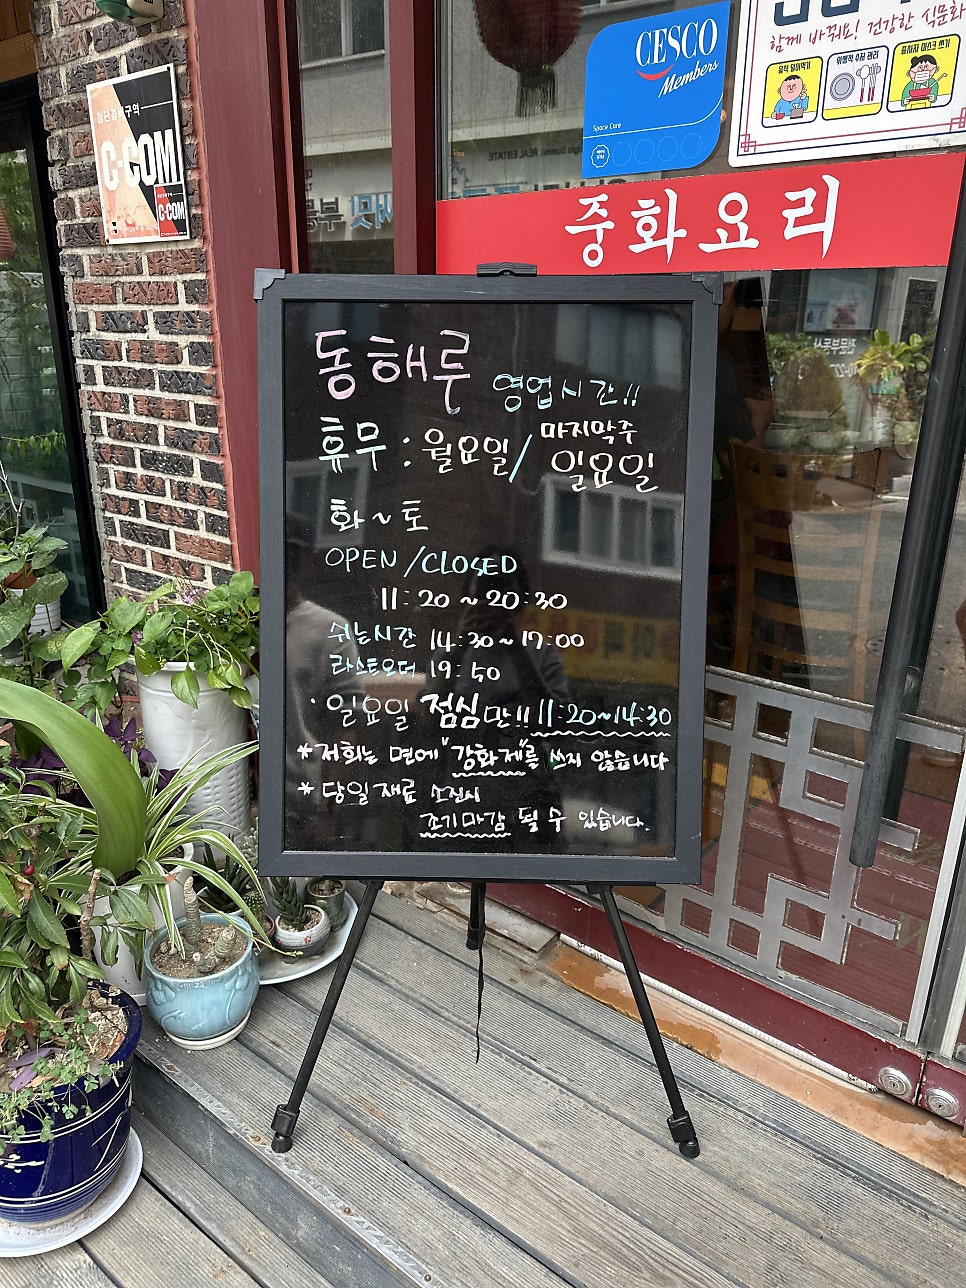 CESCO
Members
Space Care
함께 바꿔요! 건강한 식문화
음식 덜어먹기
위생적 수저 관리
종사자 마스크 쓰기
C·COM
C·COM
중화요리
동해루 영업시간!!
휴무 : 월요일 / 마지막주 일요일
화 ~ 토
OPEN / CLOSED
11:20 ~ 20:30
쉬는시간 14:30 ~ 17:00
라스트오더 19:50
· 일요일 점심만!! 11:20~14:30
* 저희는 면에 "강화제"를 쓰지 않습니다
* 당일재료 소진시
조기마감 될 수 있습니다.